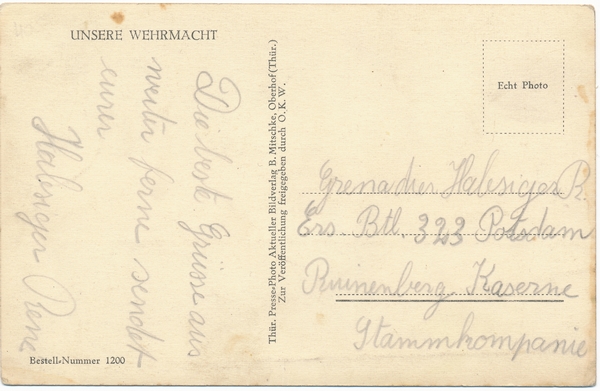 UNSERE WEHRMACHT
Die beste Grüsse aus
weiter ferne sendet
eurer
Halesiger Rene
Bestell-Nummer 1200
Thür. Presse-Photo Aktueller Bildverlag B. Mitschke, Oberhof (Thür.)
Zur Veröffentlichung freigegeben durch O. K. W.
Echt Photo
Grenadier Halesiger R.
Ers. Btl. 323 Potsdam
Ruinenberg Kaserne
Stammkompanie